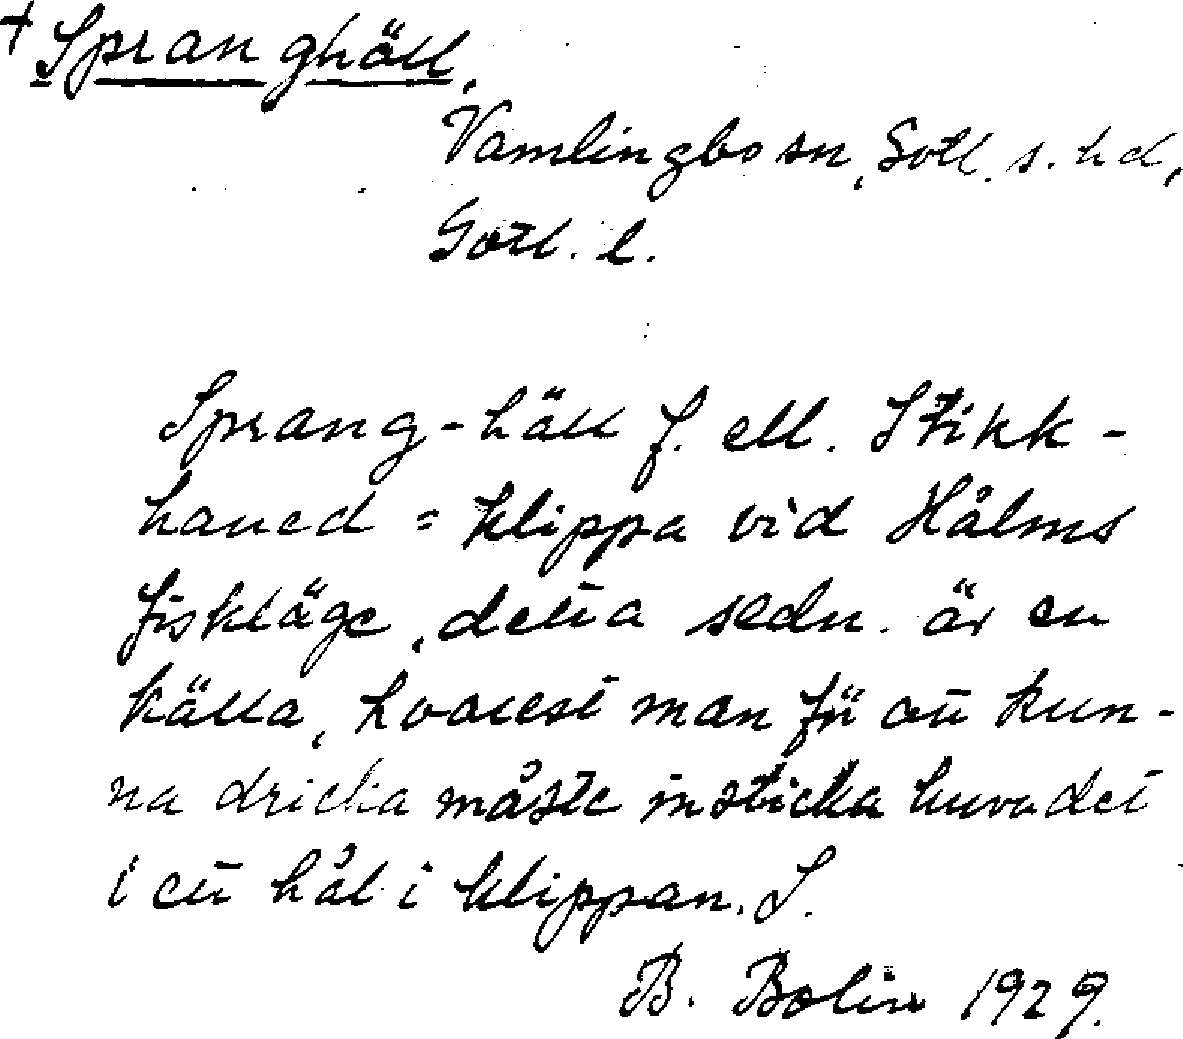 + Spranghäll.
Vamlingbo sn, Gotl. s. hd,
Gotl. l.
Sprang-häll f. ell. Stikk-
haued = klippa vid Hålms
fiskläge, detta sedn. är en
källa, hvarest man för att kun-
na dricka måste insticka huvudet
i ett hål i klippan. S.
B. Bolin 1929.